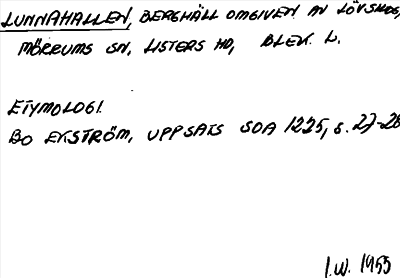 LUNNAHALLEN, BERGHÄLL OMGIVEN AV LÖVSKOG,
MÖRRUMS SN, LISTERS HD, BLEK. L.
ETYMOLOGI.
BO EKSTRÖM, UPPSATS SOA 1225, s. 27-28
I.W. 1955